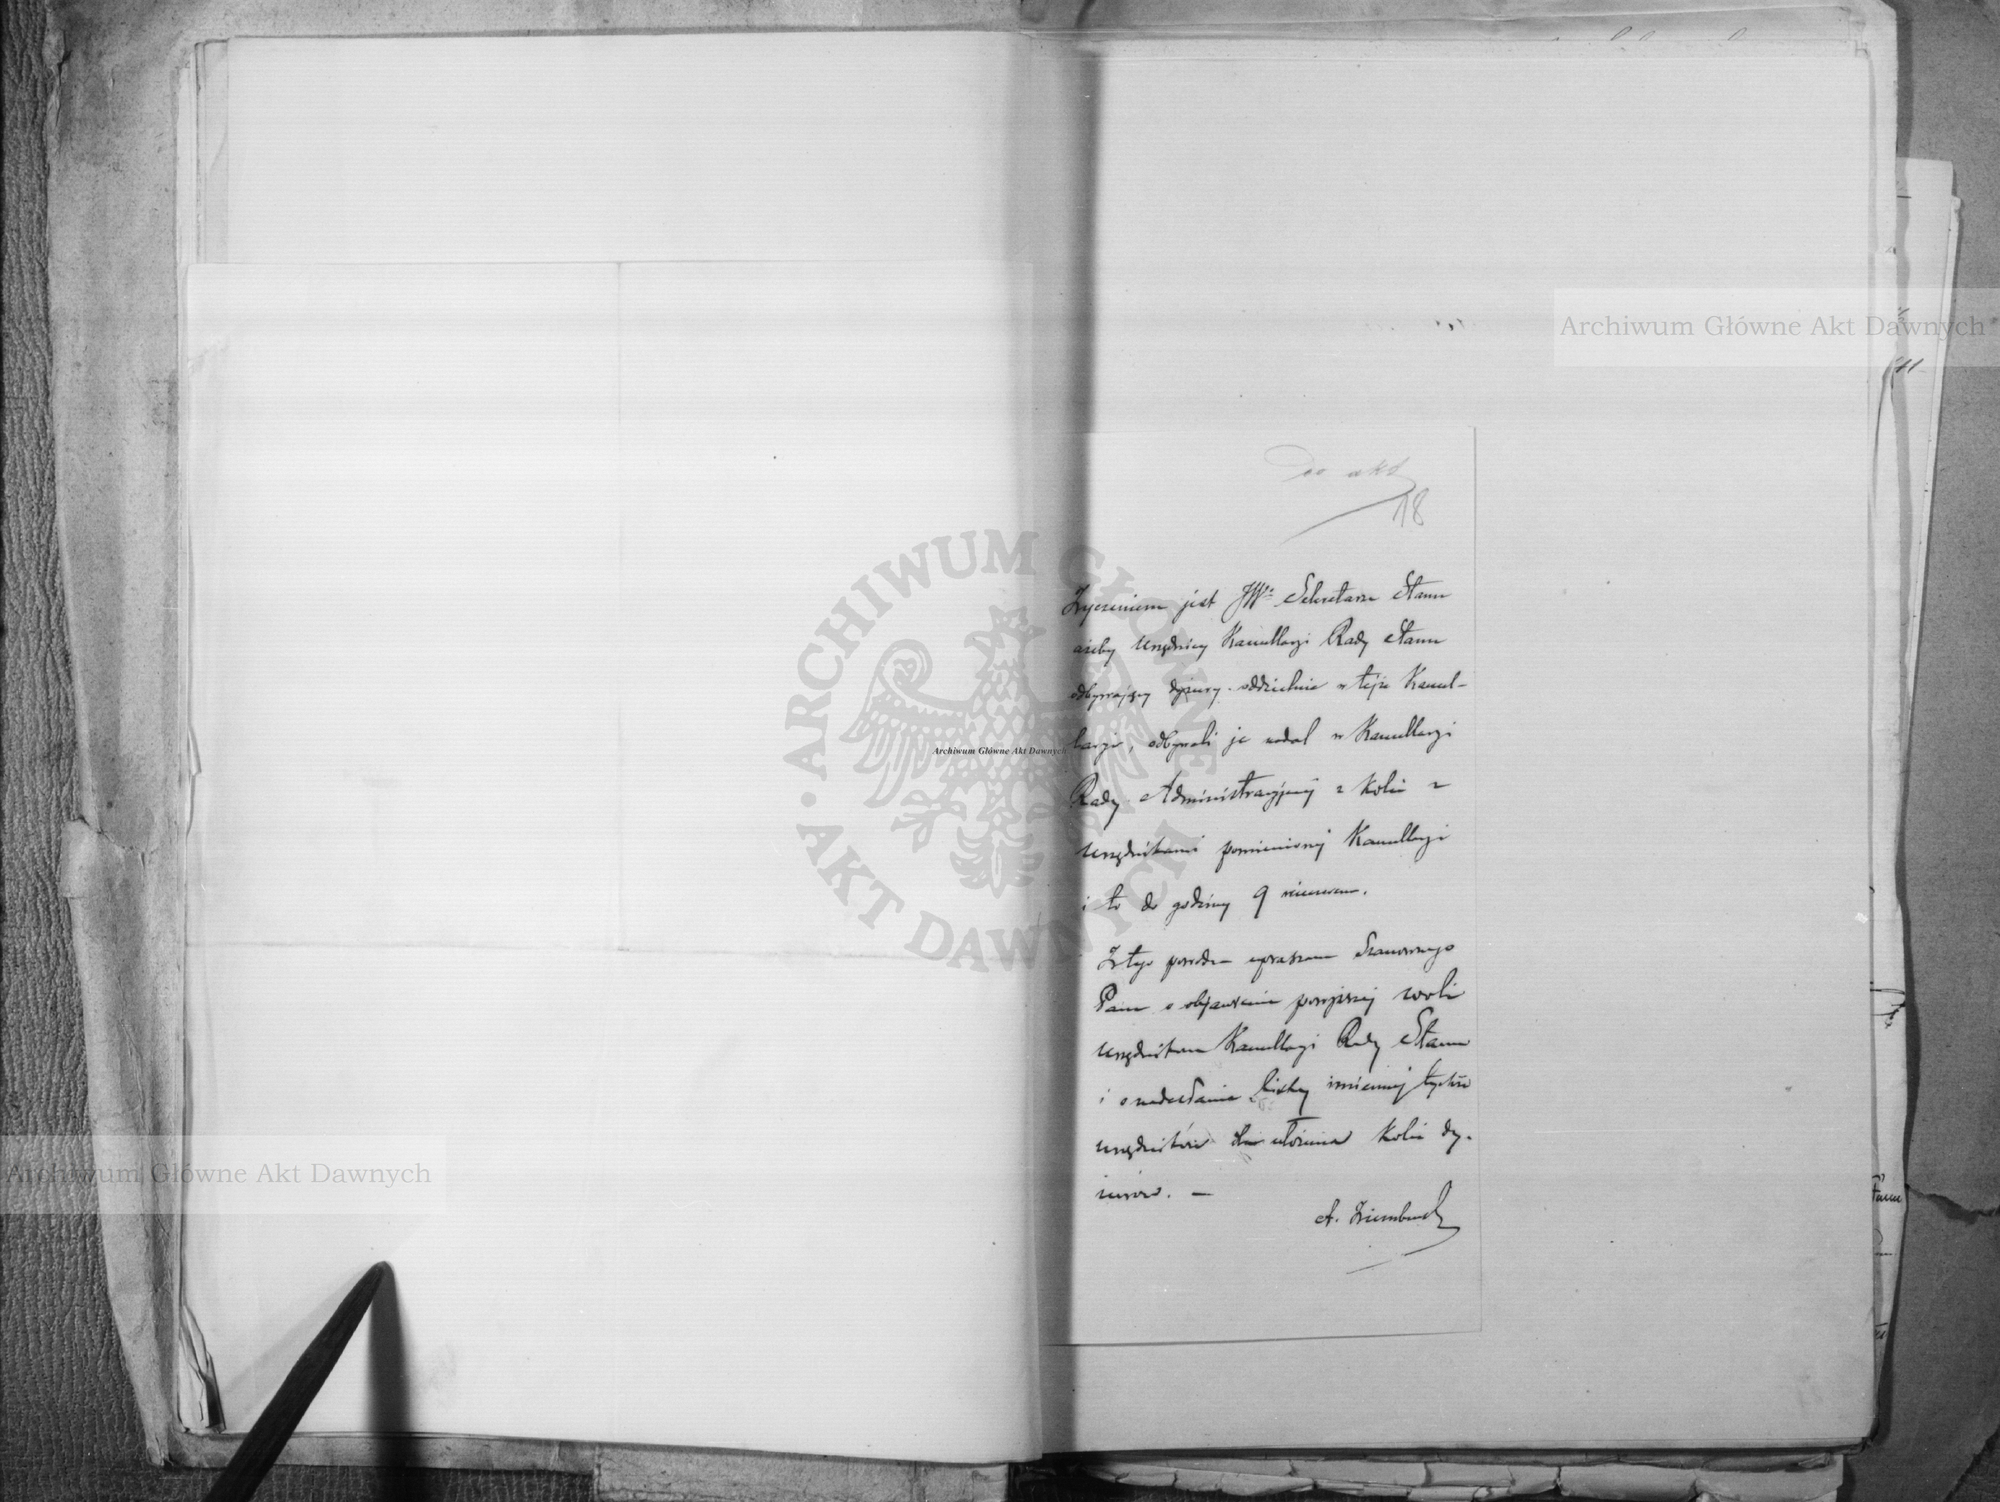 Do akt
18
Życzeniem jest JWo Sekretarza Stanu
ażeby Urzędnicy Kancellaryi Rady Stanu
odbywający dyżury oddzielnie w tejże Kancel-
laryi, odbywali je nadal w Kancellaryi
Rady Administracyjnej z kolei z
Urzędnikami pomienionej Kancellaryi
i to do godziny 9 wieczorem.
Z tego powodu upraszam Szanownego
Pana o objawienie powyższej woli
Urzędnikom Kancellaryi Rady Stanu
i o nadesłanie listy imiennej tychże
urzędników dla ułożenia kolei dy-
żurów. —
A.
Archiwum Główne Akt Dawnych
Archiwum Główne Akt Dawnych
Archiwum Główne Akt Dawnych
ARCHIWUM GŁÓWNE
AKT DAWNYCH